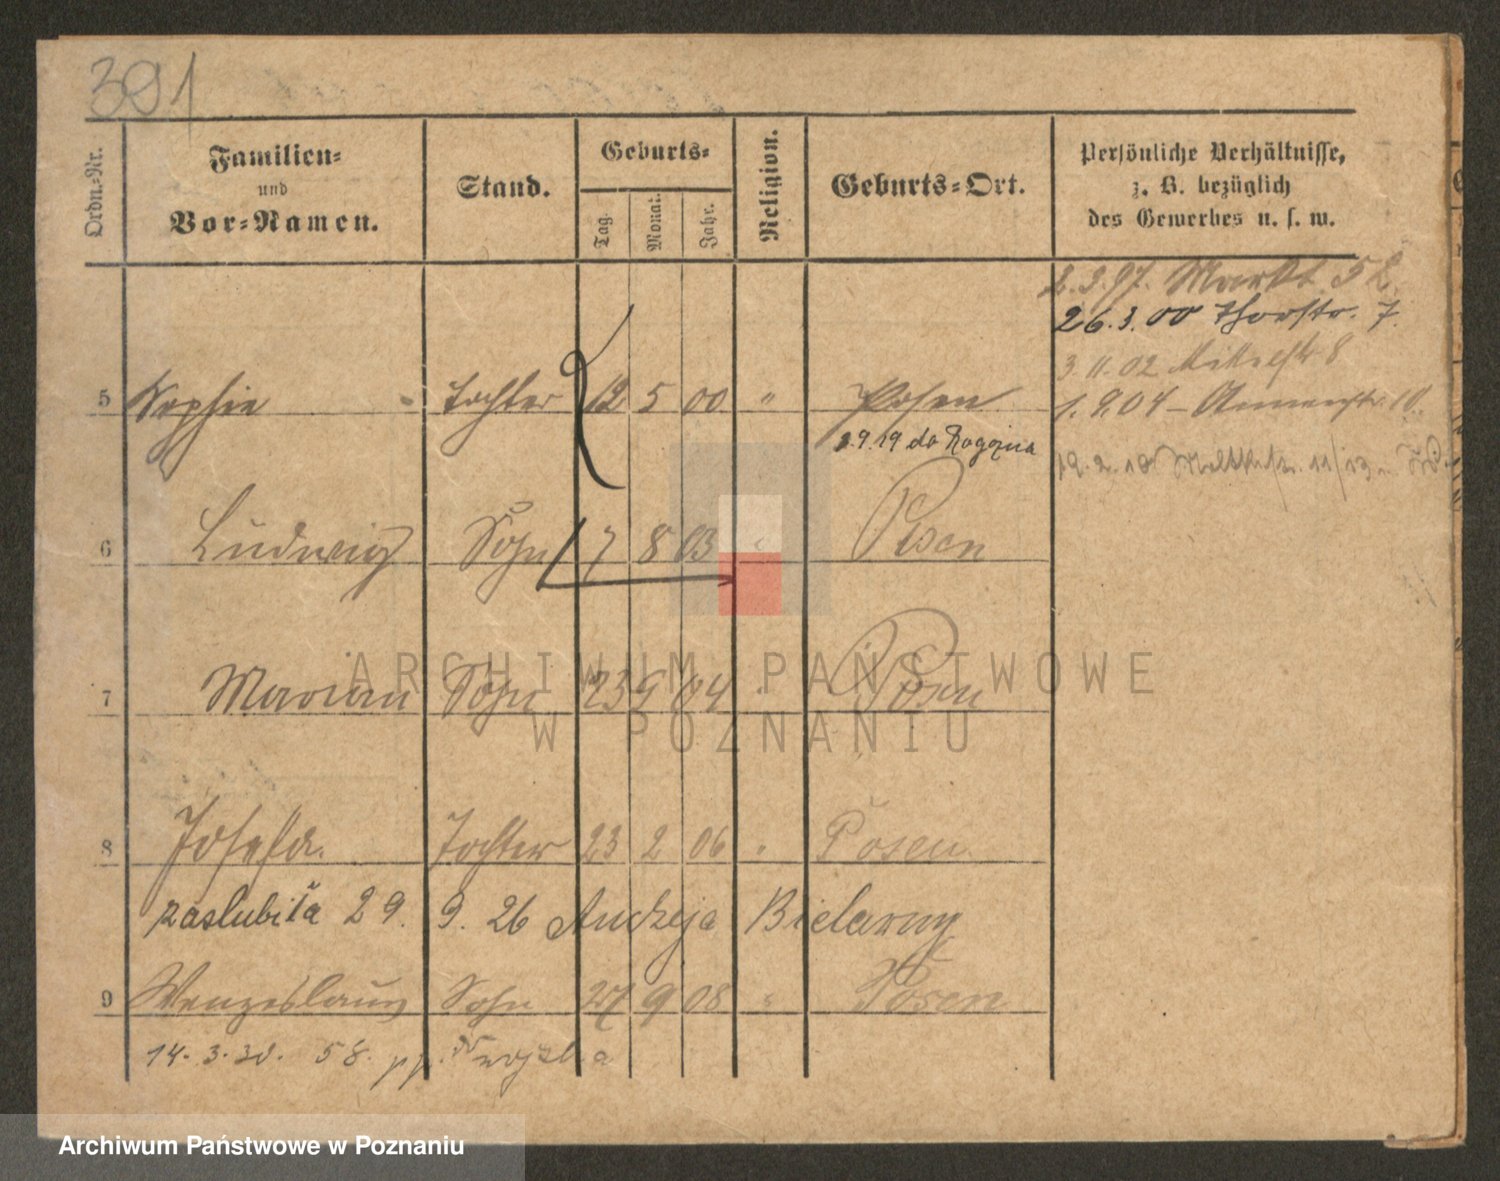 391
Ordn.-Nr.
Familien-
und
Vor-Namen.
Stand.
Geburts-
Tag.
Monat.
Jahr.
Religion.
Geburts-Ort.
Persönliche Verhältnisse,
z. B. bezüglich
des Gewerbes u. s. w.
2.3.97. Markt 52.
26.3.00 Thorstr. 7.
3.11.02 Mittelstr 8
5 Sophie Tochter 12 5 00 " Posen
1.9.04 –
3.9.19 do Rogozna
19.2.10. Moltkestr. 11/13
6 Ludwig Sohn 7 8 03 " Posen
7 Marian Sohn 23 9 04 " Posen
ARCHIWUM PAŃSTWOWE
W POZNANIU
8 Josefa. Tochter 23 2 06 " Posen
zaslubiła 29. 9. 26 Andrzeja
9 Wenzeslaus Sohn 27 9 08 " Posen
14. 3. 30. 58. pp.
Archiwum Państwowe w Poznaniu